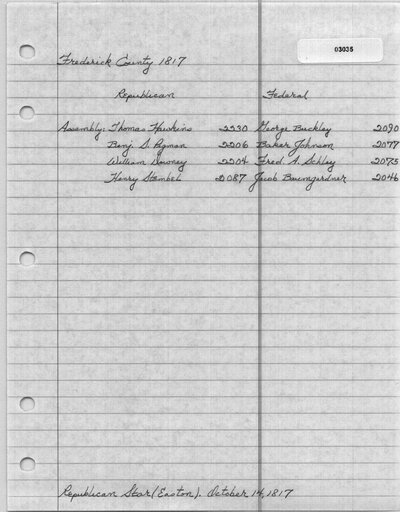 03035
Frederick County 1817
Republican Federal
Assembly: Thomas Hawkins 2230 George Buckley 2090
Benj. S. Pigman 2206 Baker Johnson 2077
William Downey 2204 Fred. A. Schley 2075
Henry Stembel 2087 Jacob Baumgardner 2046
Republican Star (Easton). October 14, 1817